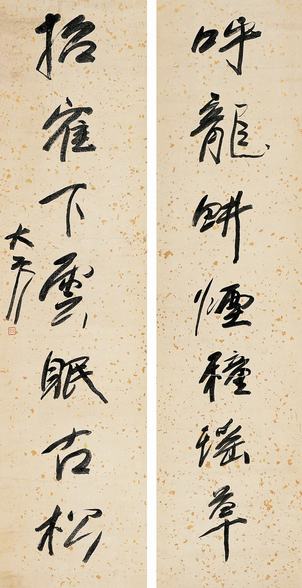 呼龍耕煙種瑤草
招寉下雲眠古松
大千